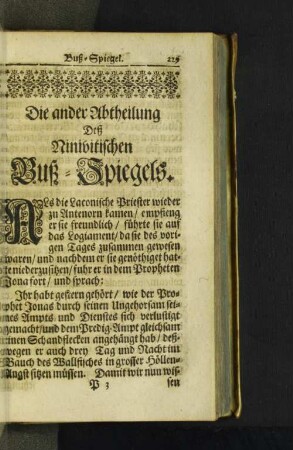 Buß-Spiegel. 229
Die ander Abtheilung
Deß
Ninivitischen
Buß-Spiegels.
ALs die Laconische Priester wieder
zu Antenorn kamen/ empfieng
er sie freundlich/ führte sie auf
das Logiament/ da sie des vori-
gen Tages zusammen gewesen
waren/ und nachdem er sie genöthiget hat-
te niederzusitzen/ fuhr er in dem Propheten
Jona fort/ und sprach:
Ihr habt gestern gehört/ wie der Pro-
phet Jonas durch seinen Ungehorsam sei-
nes Ampts und Dienstes sich verlustigt
gemacht/ und dem Predig-Ampt gleichsam
einen Schandflecken angehängt hab/ deß-
wegen er auch drey Tag und Nacht im
Bauch des Wallfisches in grosser Höllen-
Angst sitzen müssen. Damit wir nun wis-
P 3 sen